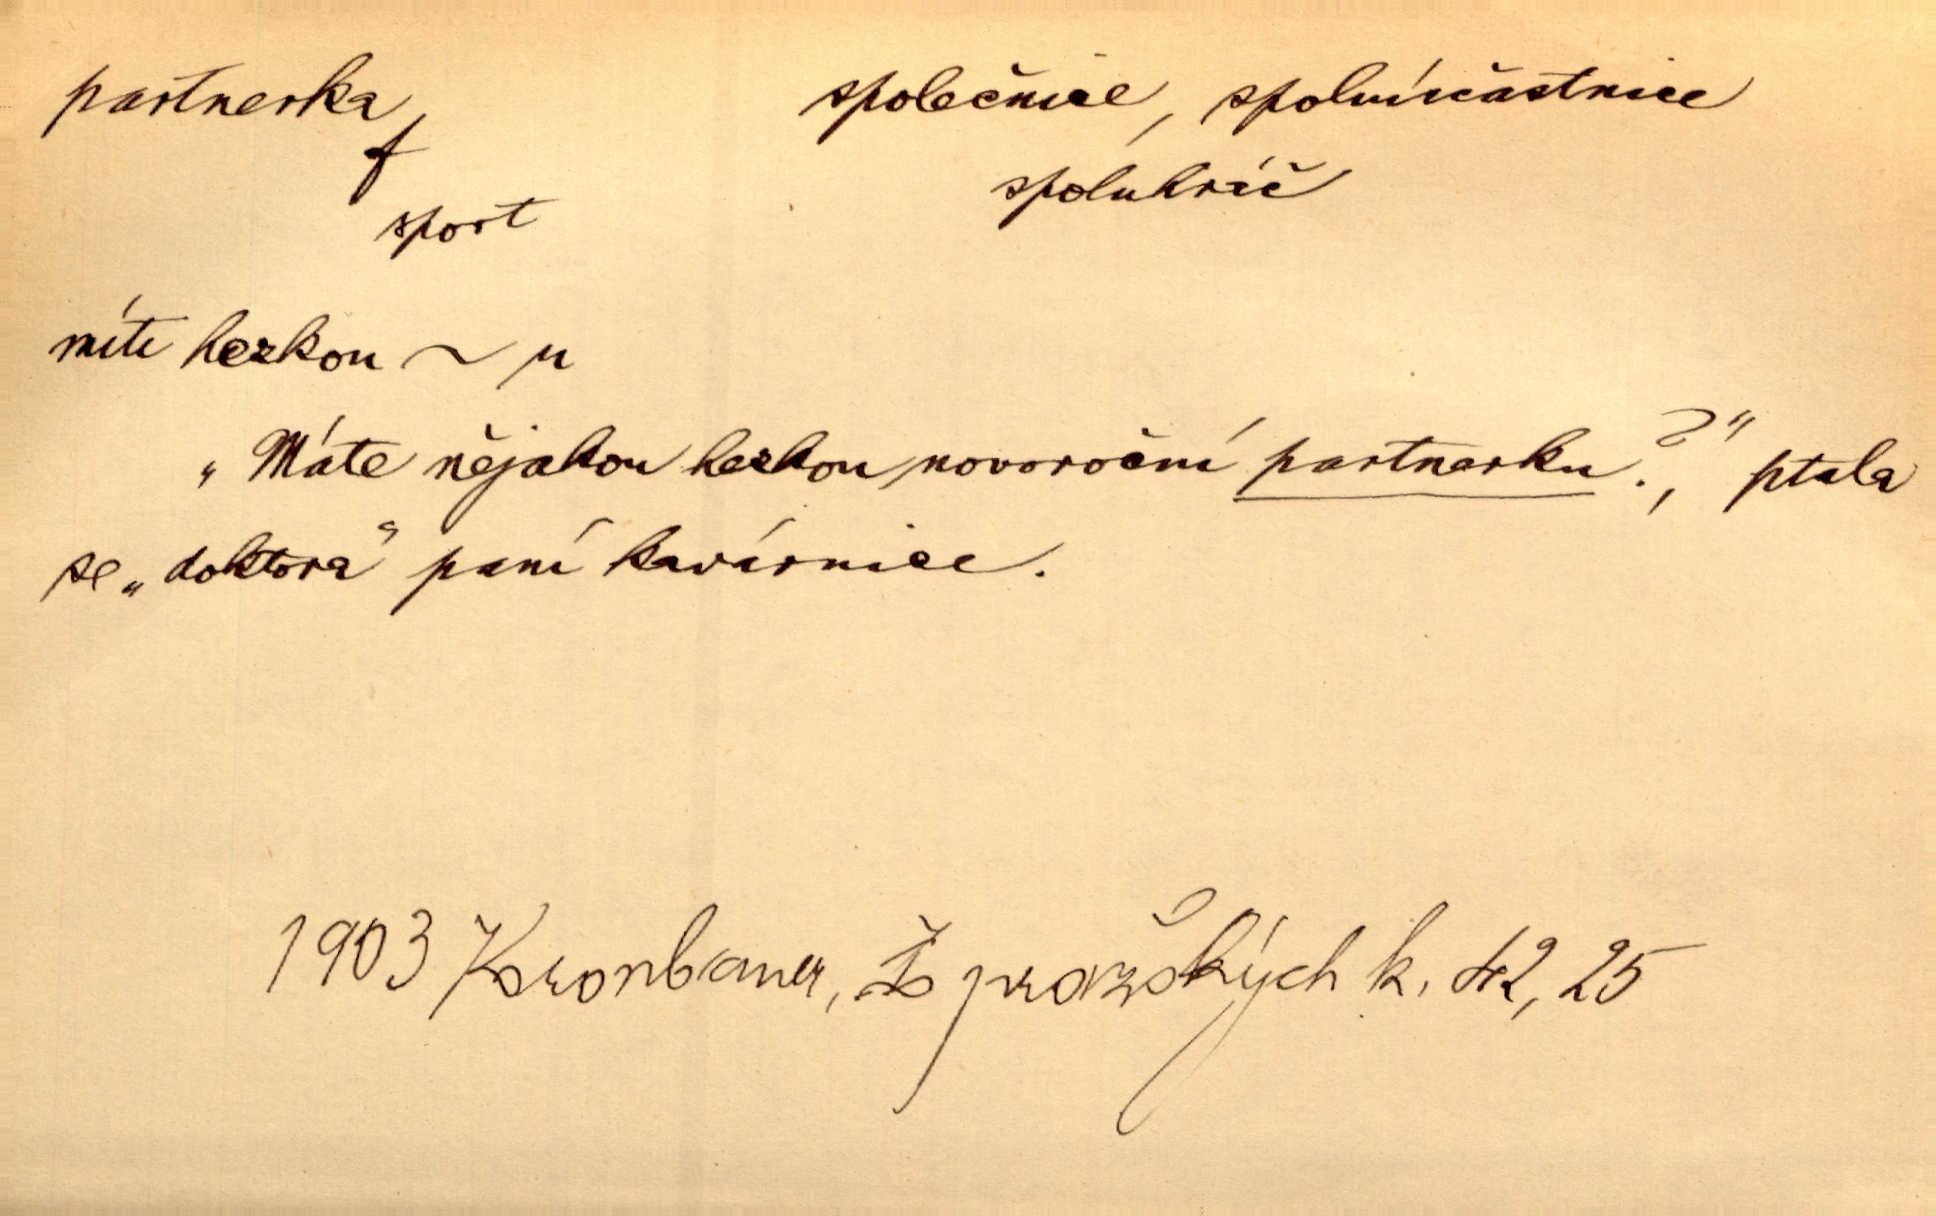 partnerka, společnice, spoluúčastnice
f spoluhráč
sport
míti hezkou ~ u
„Máte nějakou hezkou novoroční partnerku?," ptala
se „doktora" paní kavárnice.
1903 Kronbauer, Ž pražských k. 42, 25